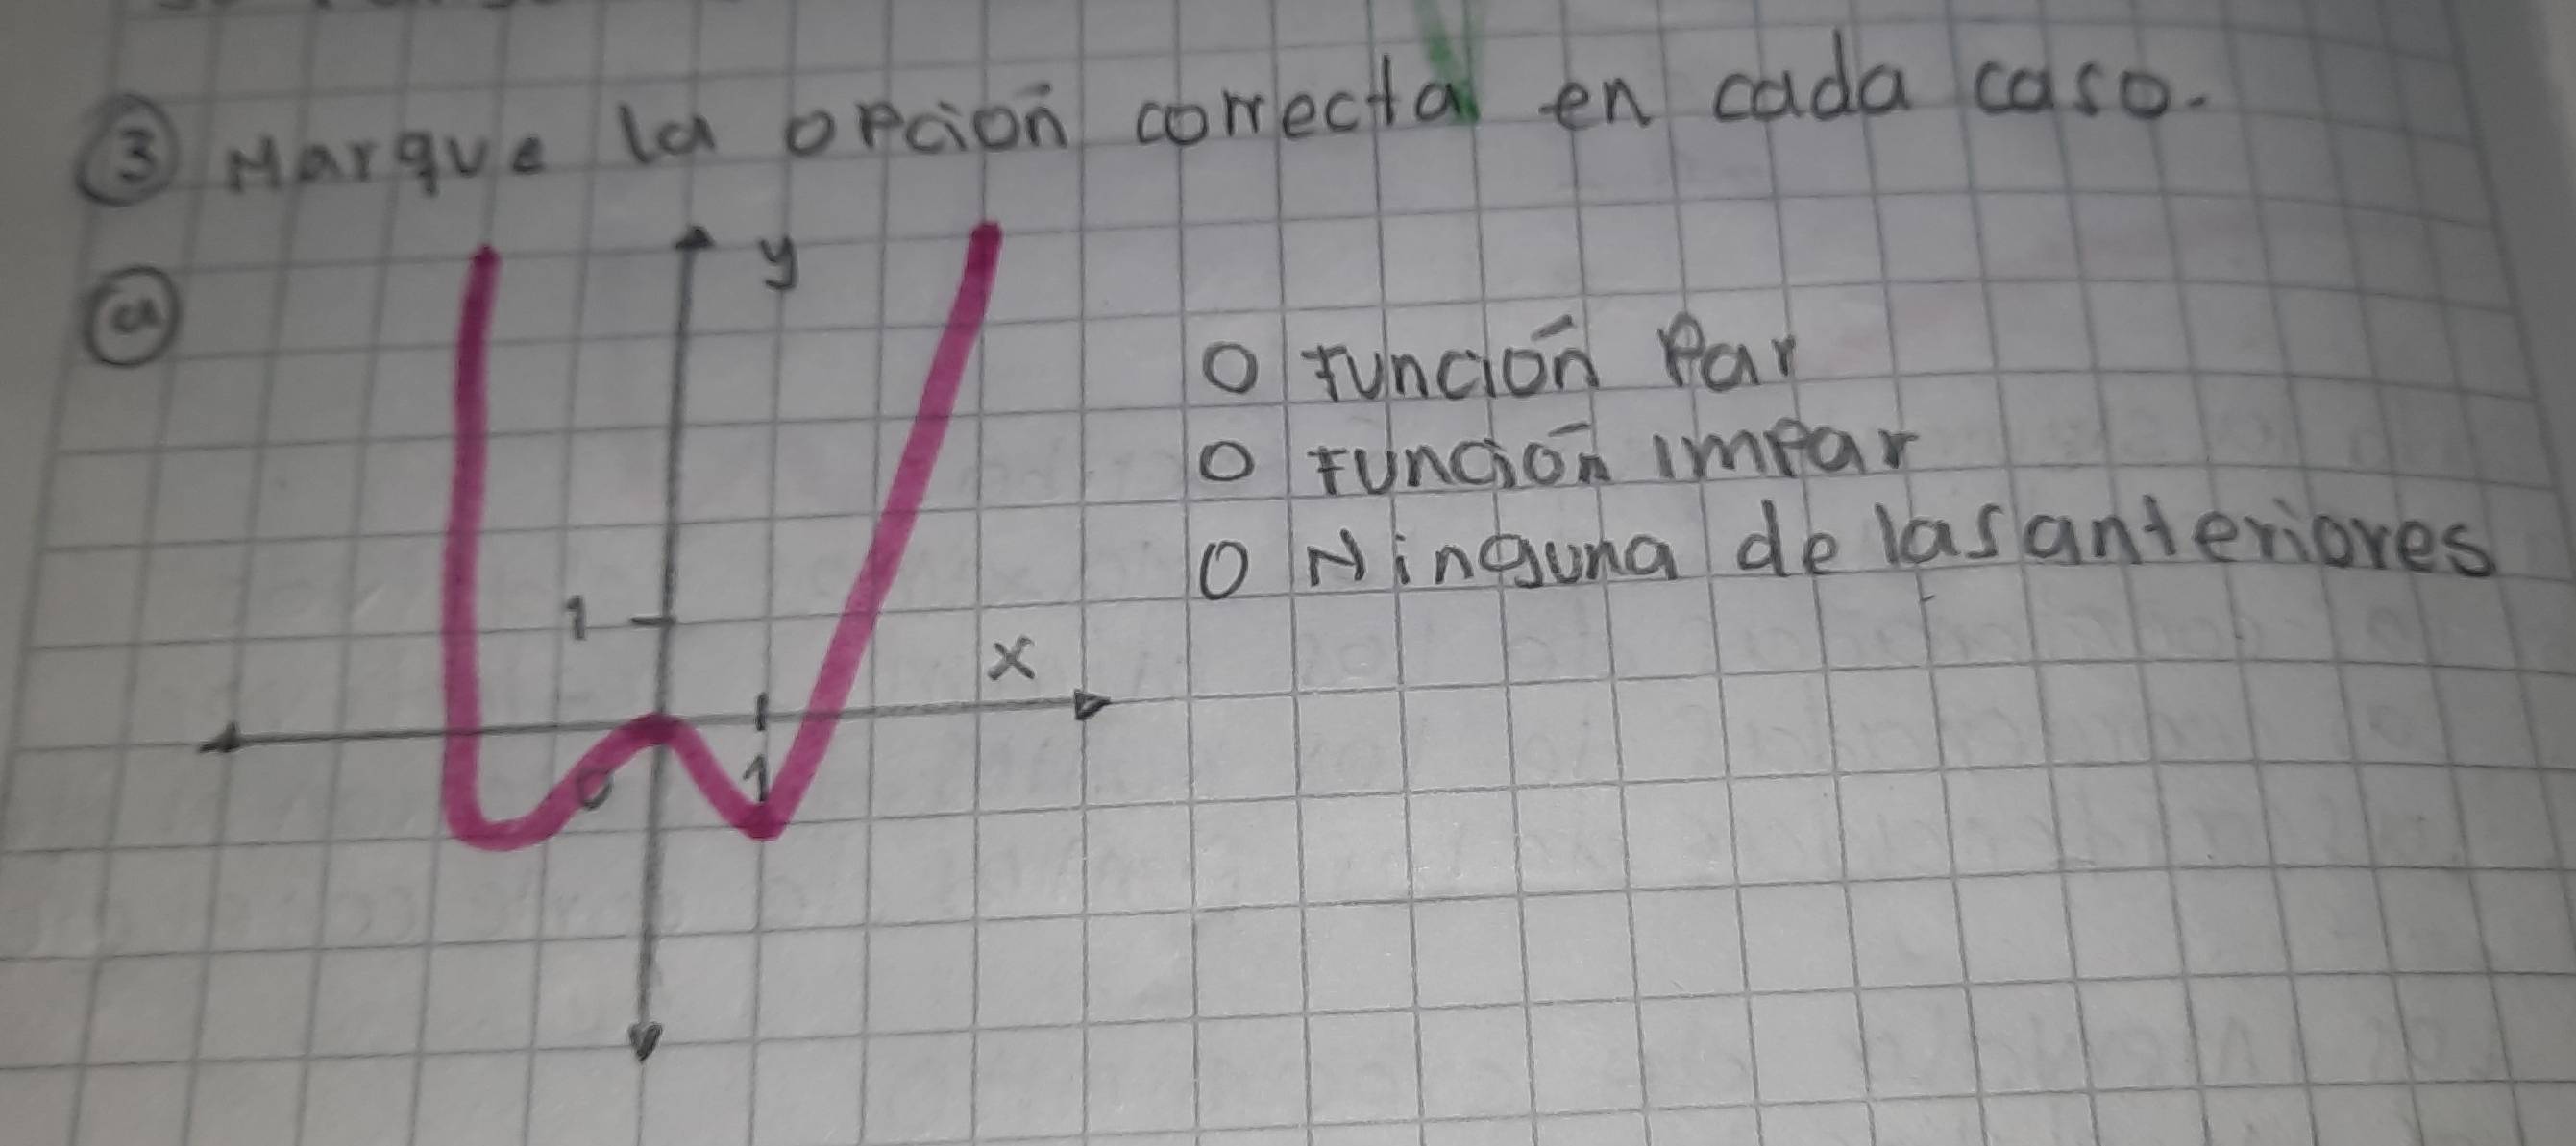 ③ Marque la opción correcta en cada caso.
ⓐ
y
○ Función Par
○ Función impar
○ Ninguna de las anteriores
1
x
0
1